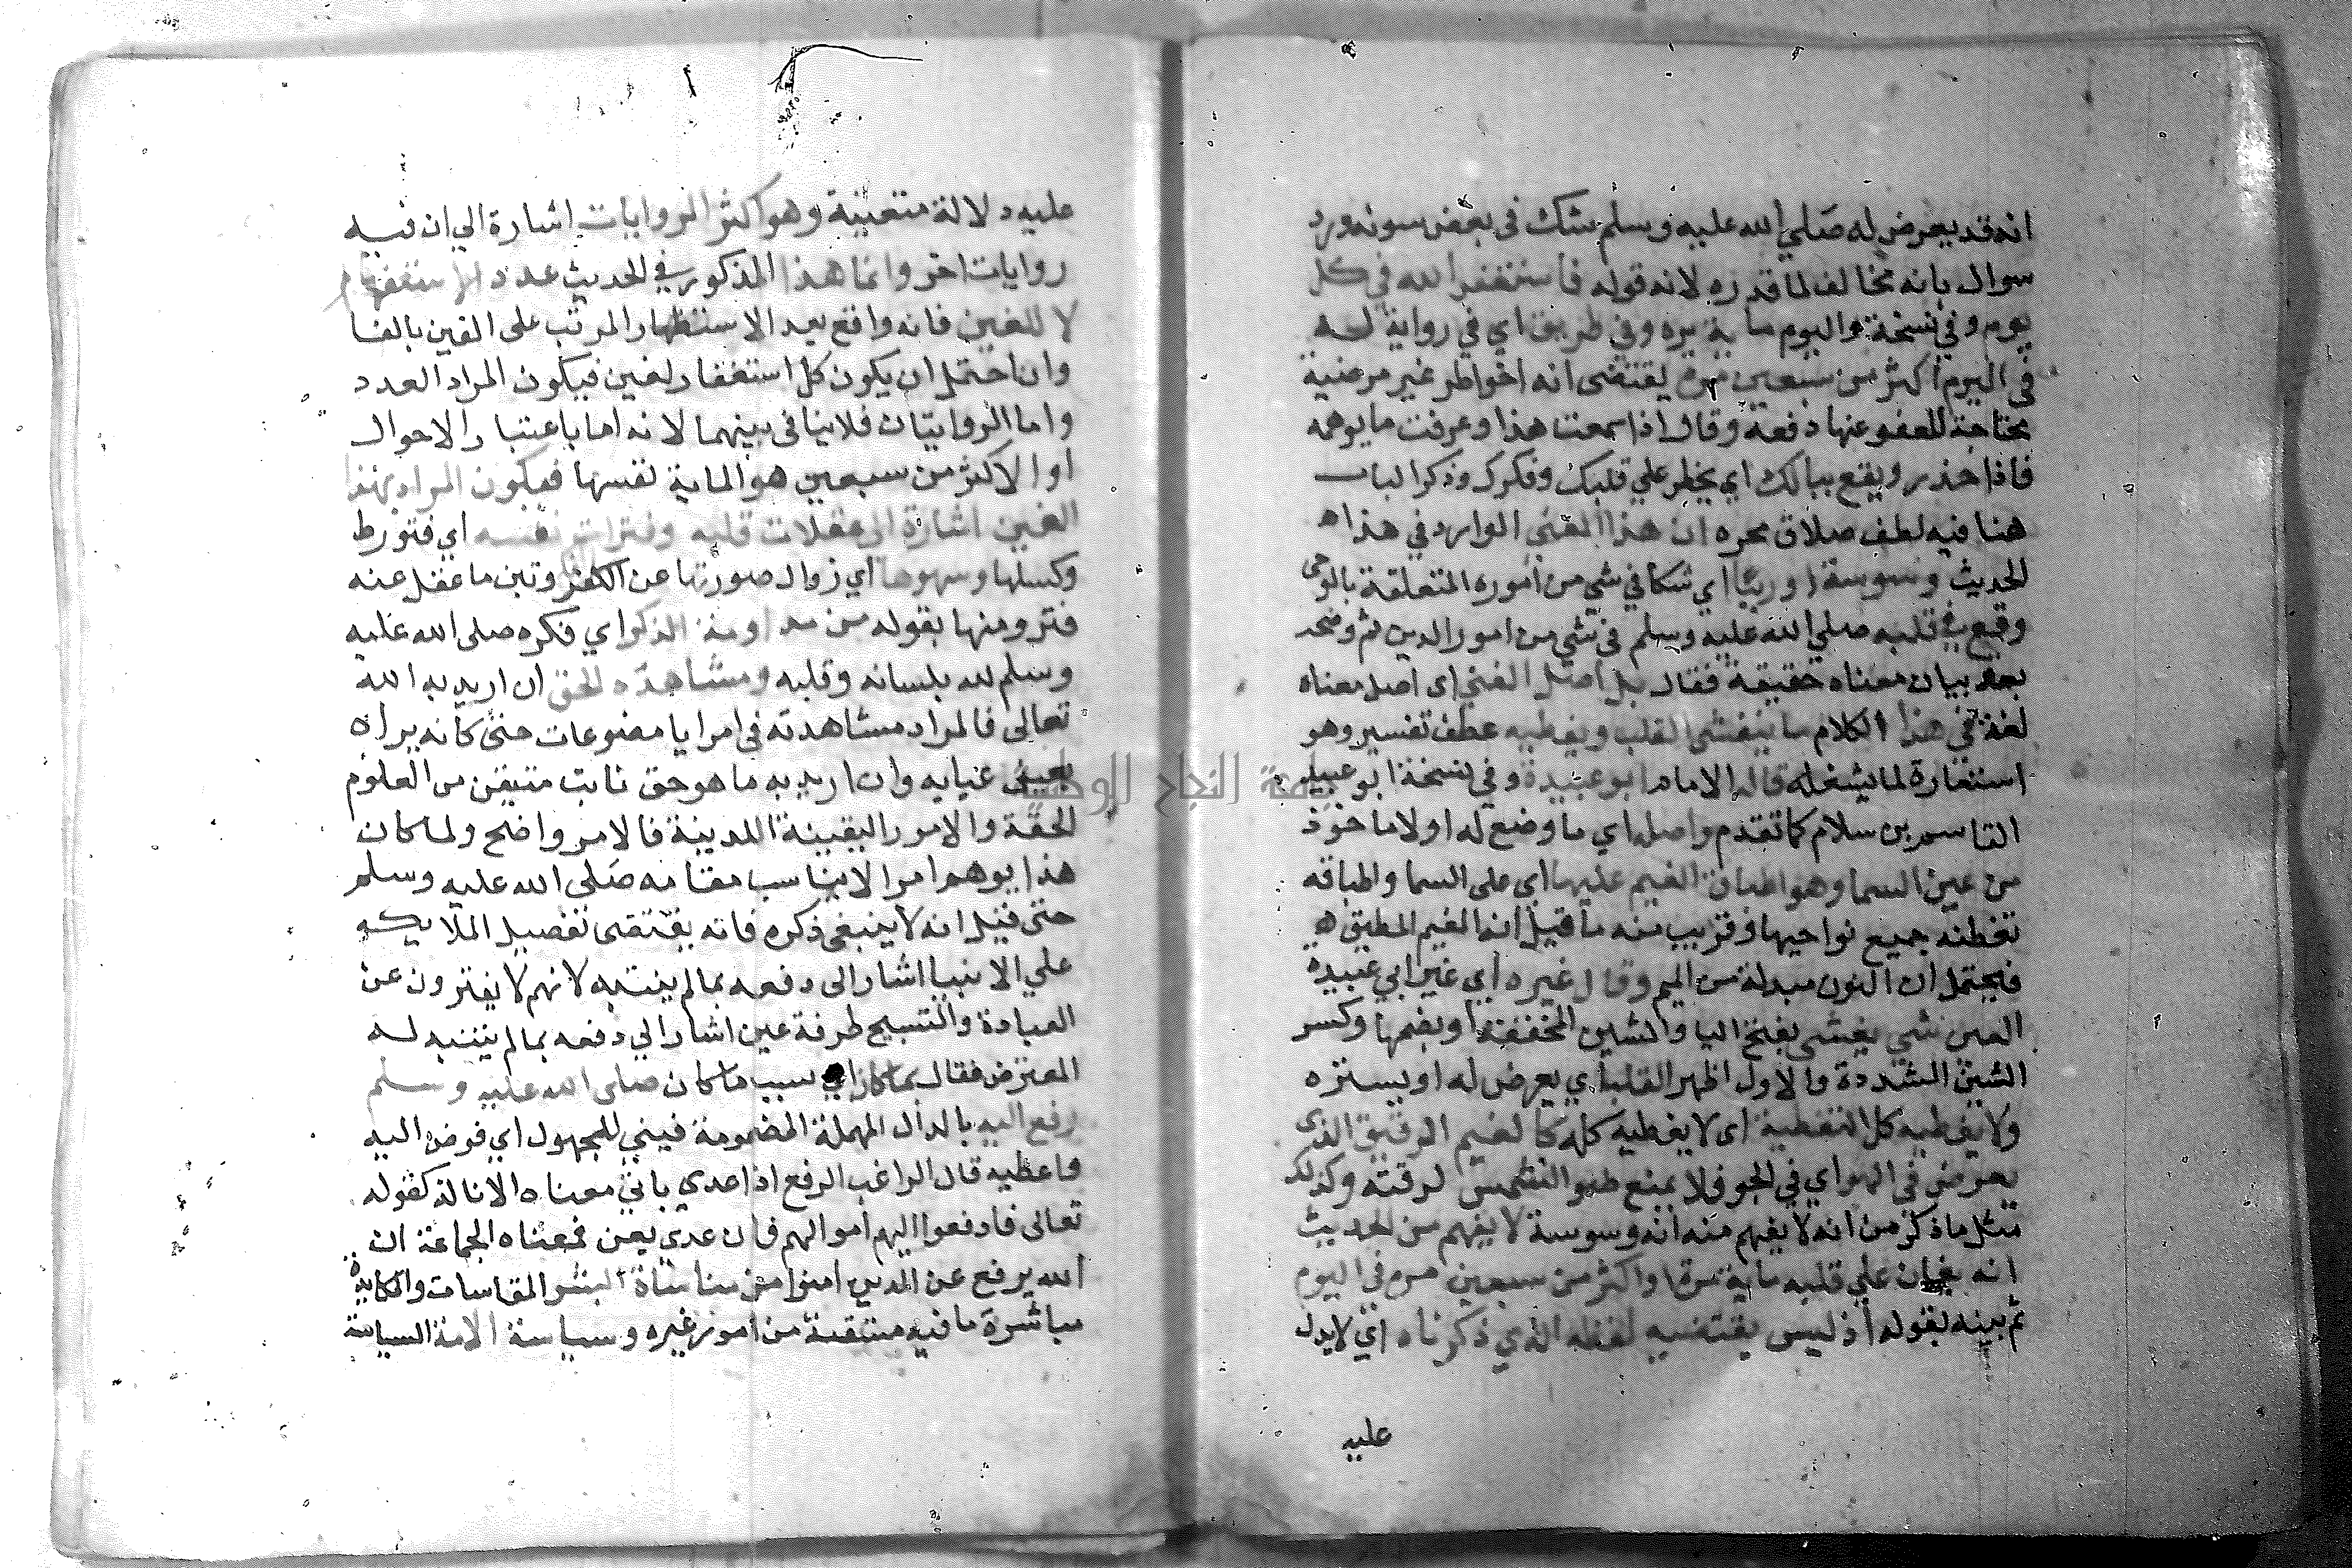 انه قد يعرض له صلي الله عليه وسلم شك في بعض سونه ورد
سوال بانه مخالف لما قدره لانه قوله فاستغفر الله في كل
يوم وفي نسخة واليوم ماية مرة وفي طريق اي في رواية له
في اليوم اكثر من سبعين مرة يقتضى انه اخواطر غير مرضية
محتاجة للعفو عنها دفعه وقال اذا سمعت هذا وعرفت ما يوهمه
فاذا حذر ويقع ببالك اي يخطر علي قلبك وفكرك وذكر الباب
هنا فيه لطف ان هذا الغين الوارد في هذا
الحديث وسوسة او ريبا اي شكا في شي من اموره المتعلقة بالوحي
وقع في قلبه صلي الله عليه وسلم في شي من امور الدين ثم وضحه
بعد بيان معناه حقيقة فقال بل اصل الغين اي اصل معناه
لغة في هذا الكلام ما يتغشى القلب ويغطيه عطف تفسير وهو
استعارة لما يشغله قاله الامام ابو عبيدة وفي نسخة ابو عبيد
القاسم بن سلام كما تقدم واصله اي ما وضع له اولا ماخوذ
من غين السما وهو اطباق الغيم عليها اي على السما واطباقه
تغطيه جميع نواحيها وقريب منه ما قيل انه الغيم المطبق
فيحتمل ان النون مبدلة من الميم وقال غيره اي غير ابي عبيدة
الغين شي يغشى بفتح اليا والشين المخففة او بضمها وكسر
الشين المشددة والاول اظهر القلب اي يعرض له او يستره
ولا يغطيه كل التغطية اى لا يغطيه كله كالغيم الرقيق الذى
يعرض في الهوا اي في الجو فلا يمنع ضو الشمس لرقته وكذلك
مثل ما ذكر من انه لا يفهم منه انه وسوسة لا يفهم من الحديث
انه يغان علي قلبه ماية مرة او اكثر من سبعين مره في اليوم
ثم بينه بقوله اذ ليس يقتضيه لفظه الذي ذكرناه اي لا يدل
عليه
عليه دلالة متعينة وهو اكثر الروايات اشارة الي ان فيه
روايات اخر وانما هذا المذكور في الحديث عدد الاستغفار
لا للغين فانه واقع بعد الاستظهار المرتب على الغين بالفا
وان احتمل ان يكون كل استغفار لغين فيكون المراد العدد
واما الروايتان فلا ينافى بينهما لانه اما باعتبار الاحوال
او الاكثر من سبعين هو الماية نفسها فيكون المراد بهذا
الغين اشارة الى غفلات قلبه وفترات نفسه اي فتورط
وكسلها وسهوها اي زوال صورتها عن الفكر وتبن ما غفل عنه
فتر ومنها بقوله من مداومة الذكر اي فكره صلى الله عليه
وسلم لله بلسانه وقلبه ومشاهدة الحق ان اريد به الله
تعالى فالمراد مشاهدته في امرايا مصنوعات حتى كانه يراه
بعين عنيايه وان اريد به ما هو حق ثابت متيقن من العلوم
الحقة والامور اليقينة اللدينة فالامر واضح ولما كان
هذا يوهم امرا لا يناسب مقامه صلى الله عليه وسلم
حتى قيل انه لا ينبغى ذكره فانه يقتقى تفضيل الملايكه
علي الانبيا اشار الى دفعه بما لم ينتبه لانهم لا يفترون عن
العبادة والتسبيح طرفة عين اشار الي دفعه بما لم يتنبه له
المعترض فقال بما كان اي سبب ما كان صلى الله عليه وسلم
رفع اليه بالدال المهملة المضمومة فيني للمجهول اي فوض اليه
واعطيه قال الراغب الرفع اذا عدي باني معناه الانالة كقوله
تعالى فادفعوا اليهم اموالهم فان عدي بعن فمعناه الجماعة ان
الله يرفع عن الذين امنوا من البشر المقاسات والمكابدة
مباشرة ما فيه مشقة من امور غيره وسياسة الامة السياسة